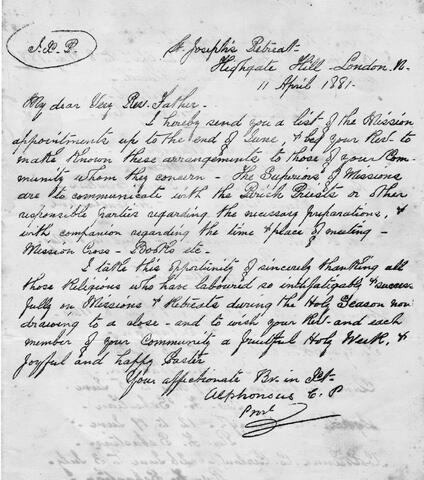 J. X. P.
St. Joseph's Retreat
Highgate Hill - London. N.
11 April 1881.
My dear Very Rev. Father -
I hereby send you a list of the Mission
appointments up to the end of June, & beg your Rev. to
make known these arrangements to those of your Com-
munity whom they concern - The Superiors of Missions
are to communicate with the Parish Priests or other
responsible parties regarding the necessary preparations, &
with companion regarding the time & place of meeting -
Mission Cross - Books etc -
I take this opportunity of sincerely thanking all
those Religious who have laboured so indefatigably & success-
fully in Missions & Retreats during the Holy Season now
drawing to a close - and to wish your Rev. and each
member of your Community a fruitful Holy Week, &
Joyful and happy Easter
Your affectionate Br. in Xt.
Alphonsus C. P
Provl.